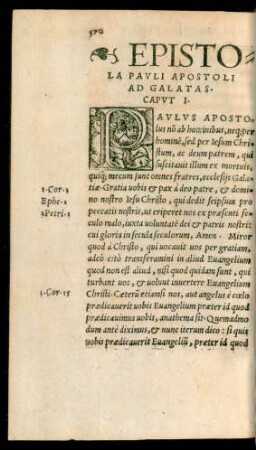 570
EPISTO
LA PAVLI APOSTOLI
AD GALATAS.
CAPVT I.
PAVLVS APOSTO
lus nõ ab hominibus, neq; per
hominẽ, sed per Iesum Chri
stum, ac deum patrem, qui
suscitauit illum ex mortuis,
quiq; mecum sunt omnes fratres, ecclesijs Gala-
1·Cor·1 tiæ· Gratia uobis & pax à deo patre, & domi-
Ephe·1 no nostro Iesu Christo, qui dedit seipsum pro
1Petri·1 peccatis nostris, ut eriperet nos ex præsenti secu
lo malo, iuxta uoluntatẽ dei & patris nostri:
cui gloria in secula seculorum, Amen· Miror
quod à Christo, qui uocauit uos per gratiam,
adeò citò transferamini in aliud Euangelium
quod non est aliud, nisi quod quidam sunt, qui
turbant uos, & uolunt inuertere Euangelium
1·Cor·15 Christi· Cæterũ etiamsi nos, aut angelus è cœlo
prædicauerit uobis Euangelium præter id quod
prædicauimus uobis, anathema sit· Quemadmo
dum antè diximus, & nunc iterum dico: si quis
uobis prædicauerit Euangeliũ, præter id quod